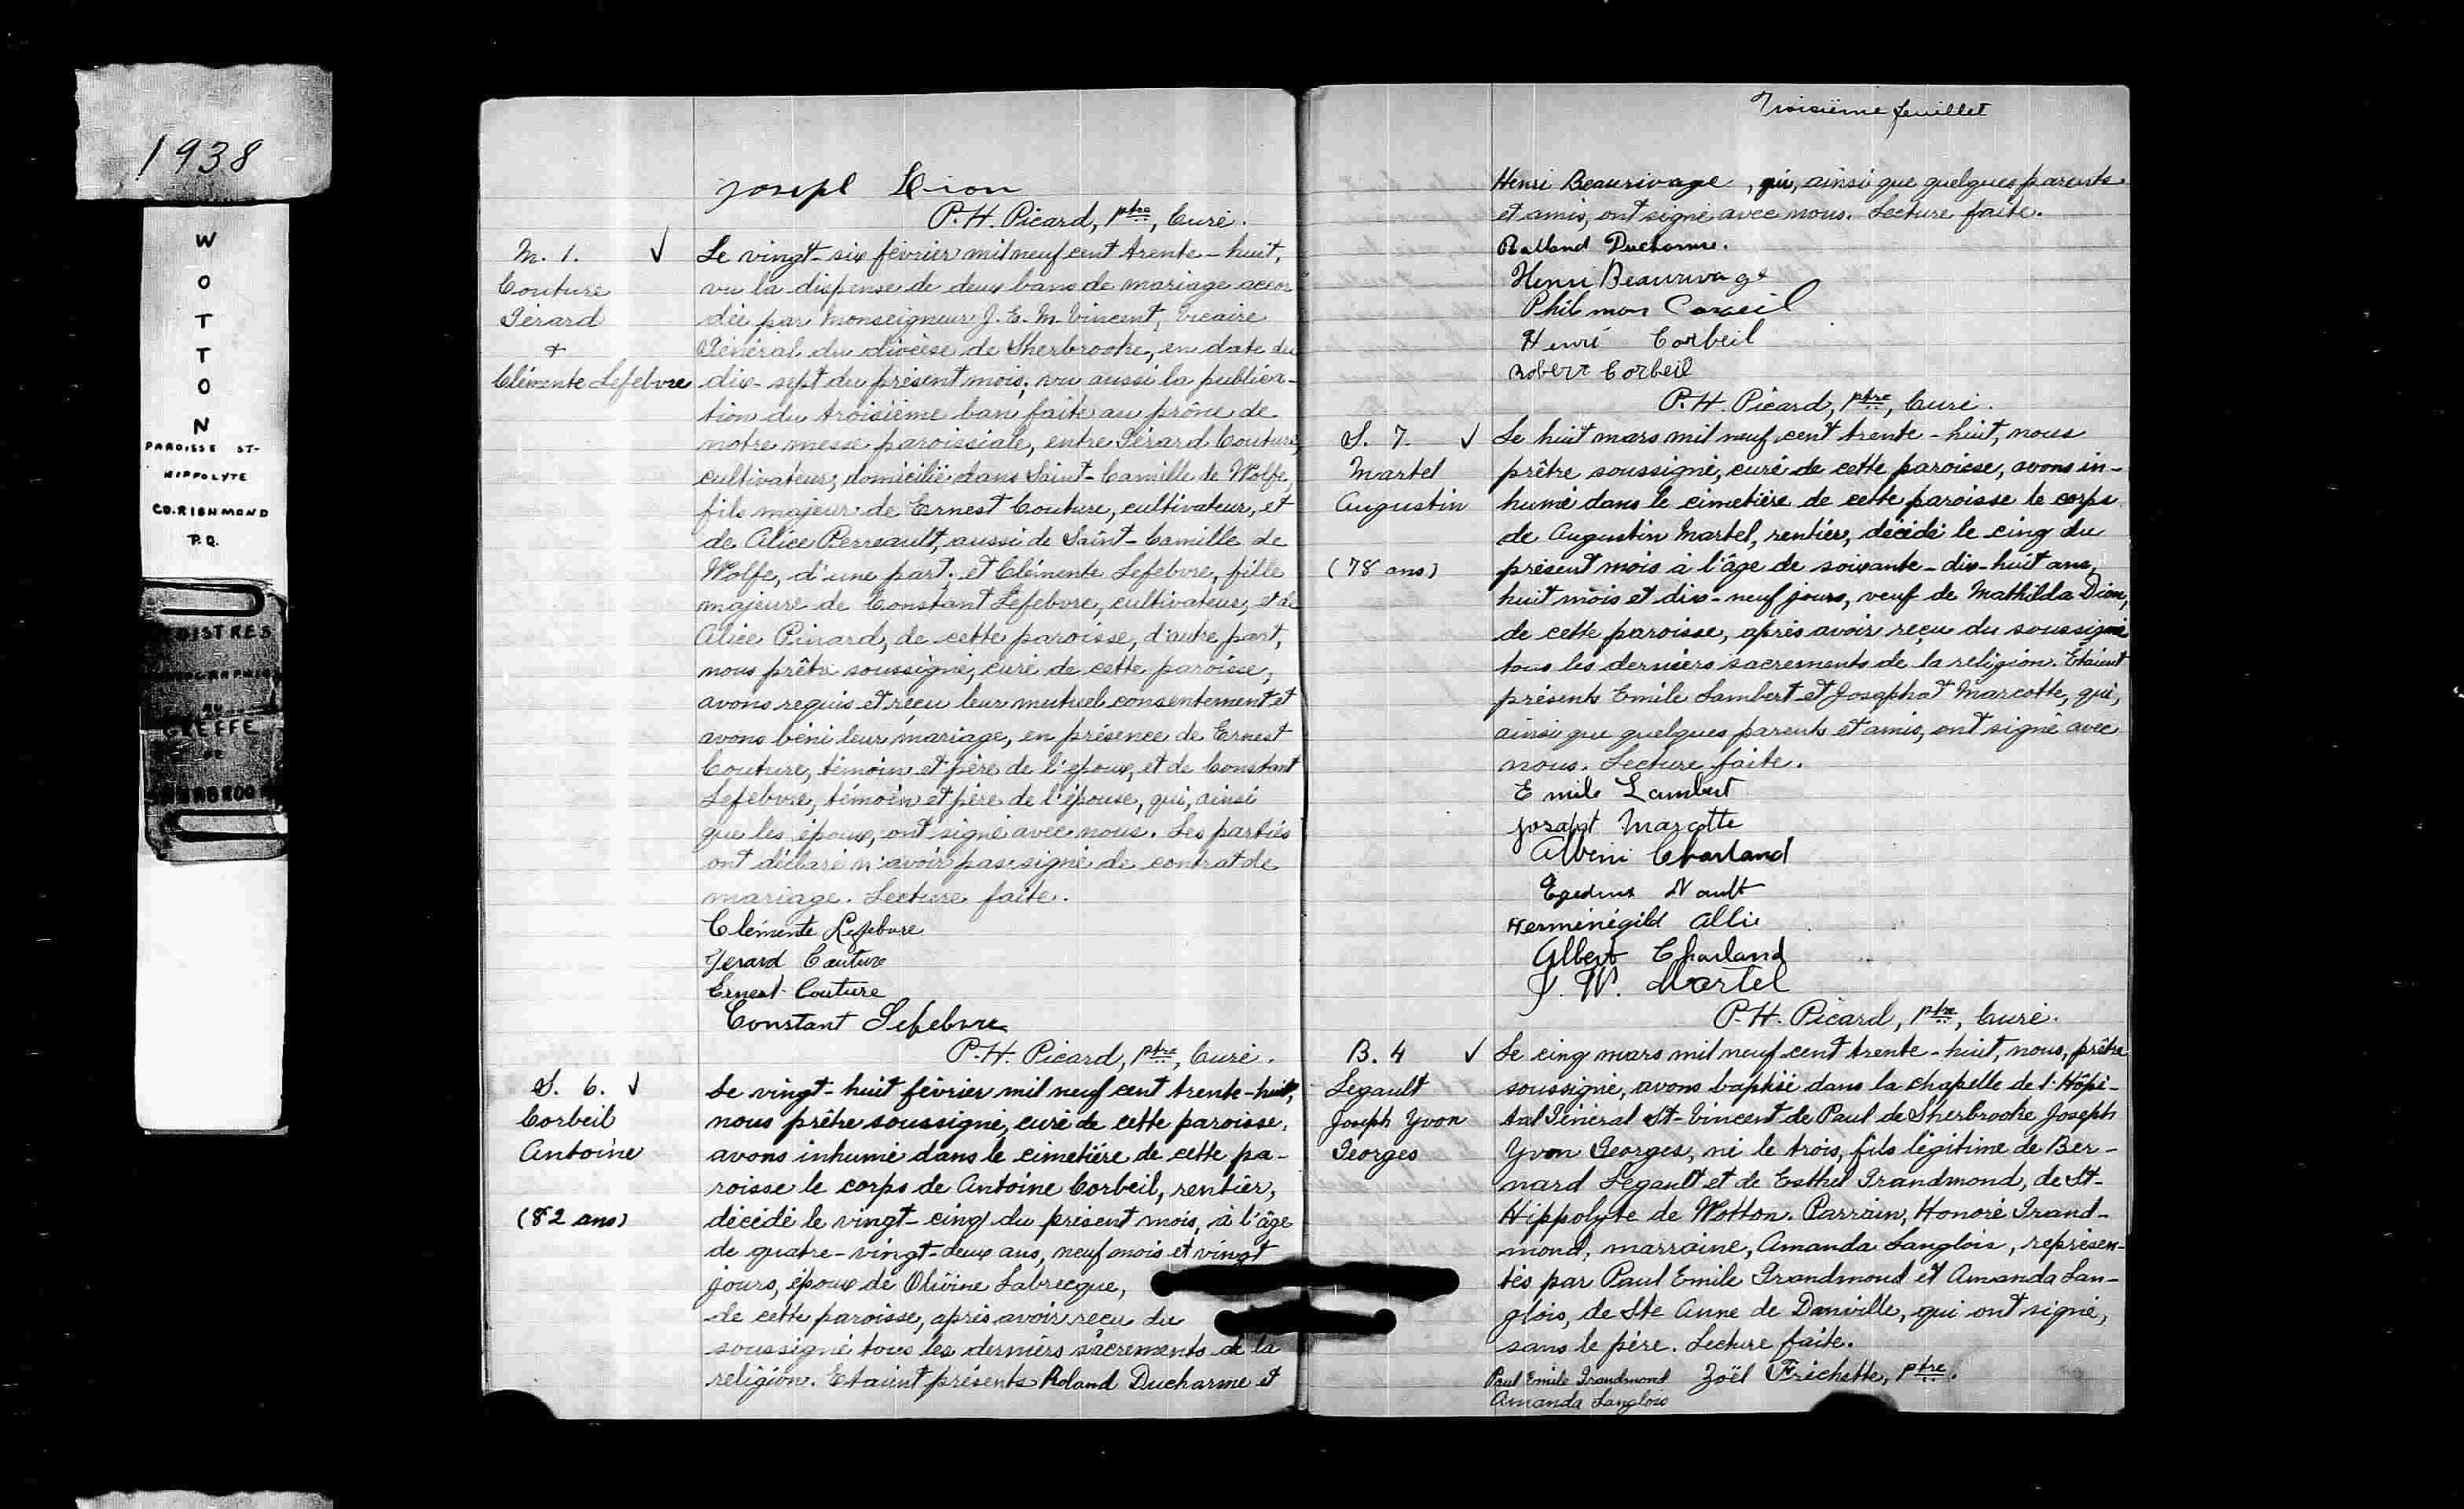 1938
W
O
T
T
O
N
PAROISSE ST-
HIPPOLYTE
CO. RICHMOND
P.Q.
GREFFE
Joseph Dion
P. H. Picard, ptre, Curé.
M. 1.
Couture
Gérard
+
Clémente Lefebvre
Le vingt-six février mil neuf cent trente-huit,
vu la dispense de deux bans de mariage accor
dée par Monseigneur J. E. M. Vincent, Vicaire
Général du diocèse de Sherbrooke, en date du
dix-sept du présent mois; vu aussi la publica-
tion du troisième ban faite au prône de
notre messe paroissiale, entre Gérard Couture,
cultivateur, domicilié dans Saint-Camille de Wolfe,
fils majeur de Ernest Couture, cultivateur, et
de Alice Perreault, aussi de Saint-Camille de
Wolfe, d'une part. et Clémente Lefebvre, fille
majeure de Constant Lefebvre, cultivateur, et de
Alice Pinard, de cette paroisse, d'autre part,
nous prêtre soussigné, curé de cette paroisse,
avons requis et reçu leur mutuel consentement et
avons béni leur mariage, en présence de Ernest
Couture, témoin et père de l'époux, et de Constant
Lefebvre, témoin et père de l'épouse, qui, ainsi
que les époux, ont signé avec nous. Les parties
ont déclaré n'avoir pas signé de contrat de
mariage. Lecture faite.
Clémente Lefebvre
Gerard Couture
Ernest Couture
Constant Lefebvre
P. H. Picard, ptre, Curé.
S. 6.
Corbeil
Antoine
(82 ans)
Le vingt-huit février mil neuf cent trente-huit,
nous prêtre soussigné, curé de cette paroisse,
avons inhumé dans le cimetière de cette pa-
roisse le corps de Antoine Corbeil, rentier,
décédé le vingt-cinq du présent mois, à l'âge
de quatre-vingt-deux ans, neuf mois et vingt
jours, époux de Olivine Labrecque,
de cette paroisse, après avoir reçu du
soussigné tous les derniers sacrements de la
religion. Etaient présents Roland Ducharme et
Troisième feuillet
Henri Beaurivage, qui, ainsi que quelques parents
et amis, ont signé avec nous. Lecture faite.
Rolland Ducharme.
Henri Beaurivage
Philmon Corbeil
Henri Corbeil
Robert Corbeil
P. H. Picard, ptre, Curé.
S. 7.
Martel
Augustin
(78 ans)
Le huit mars mil neuf cent trente-huit, nous
prêtre soussigné, curé de cette paroisse, avons in-
humé dans le cimetière de cette paroisse le corps
de Augustin Martel, rentier, décédé le cinq du
présent mois à l'âge de soixante-dix-huit ans,
huit mois et dix-neuf jours, veuf de Mathilda Dion,
de cette paroisse, après avoir reçu du soussigné
tous les derniers sacrements de la religion. Étaient
présents Emile Lambert et Josaphat Marcotte, qui,
ainsi que quelques parents et amis, ont signé avec
nous. Lecture faite.
Emile Lambert
Josaphat Marcotte
Albéni Charland
Nault
Herménégild Allie
Albert Charland
J. W. Martel
P. H. Picard, ptre, Curé.
B. 4
Legault
Joseph Yvon
Georges
Le cinq mars mil neuf cent trente-huit, nous, prêtre
soussigné, avons baptisé dans la chapelle de l'Hôpi-
tal Général St-Vincent de Paul de Sherbrooke Joseph
Yvon Georges, né le trois, fils légitime de Ber-
nard Legault et de Esthel Grandmond, de St-
Hippolyte de Wotton. Parrain, Honoré Grand-
mond, marraine, Amanda Langlois, représen-
tés par Paul Emile Grandmond et Amanda Lan-
glois, de Ste Anne de Danville, qui ont signé,
sans le père. Lecture faite.
Paul Emile Grandmond Zoël Fréchette, ptre.
Amanda Langlois